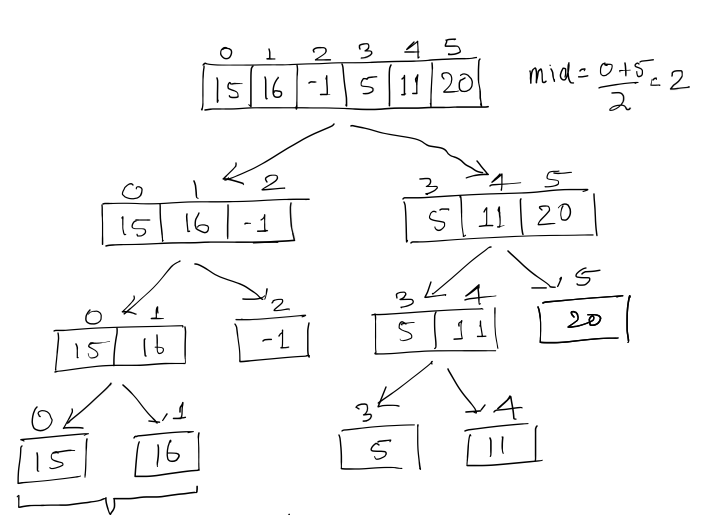 0 1 2 3 4 5
15 16 -1 5 11 20
mid = 0+5/2 = 2
0 1 2
15 16 -1
3 4 5
5 11 20
0 1
15 16
2
-1
3 4
5 11
5
20
0
15
1
16
3
5
4
11